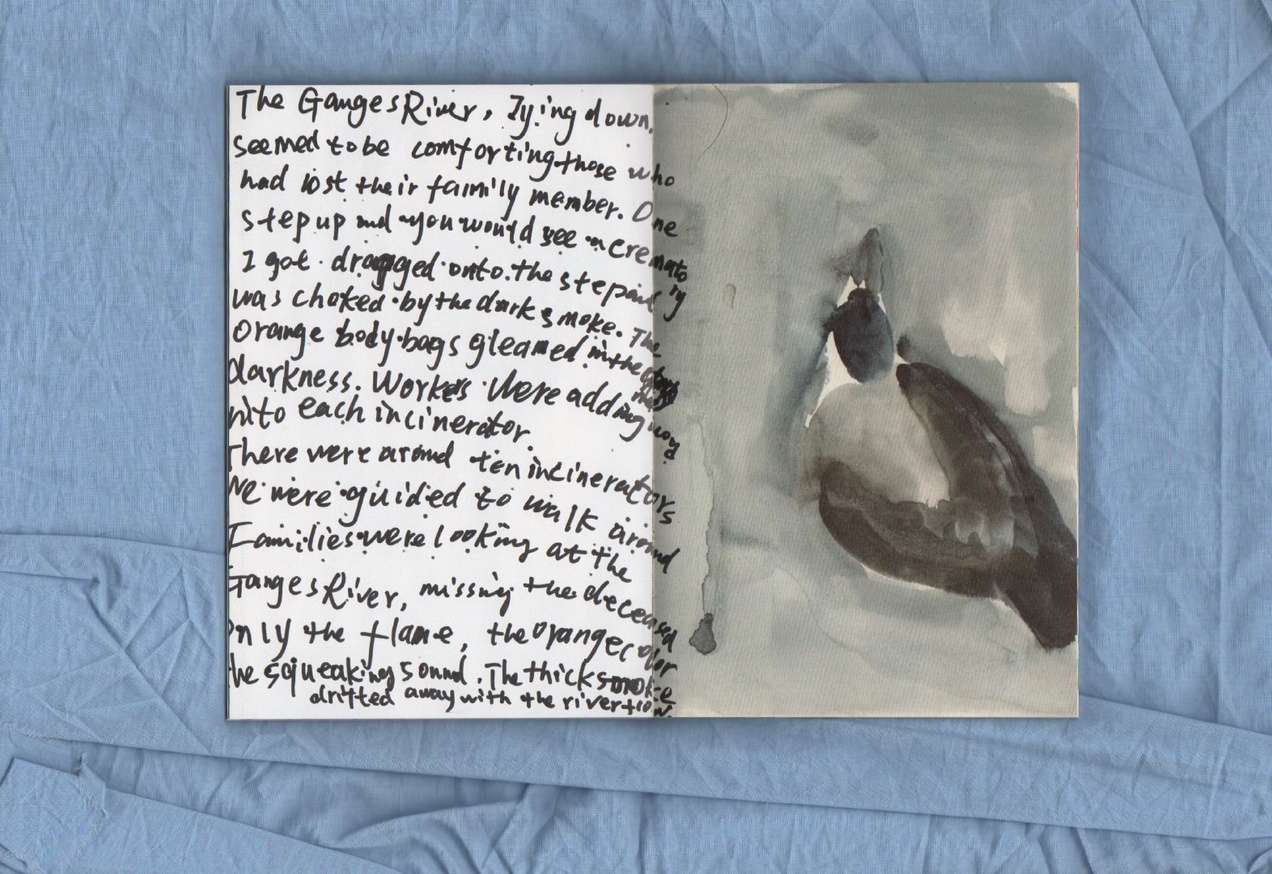 The Ganges River, lying down,
seemed to be comforting those who
had lost their faimily member. One
step up and you would see a crematory
I got dragged onto the step and
was choked by the dark smoke. The
Orange body bags gleamed in the
darkness. Workers were adding wood
into each incinerator.
There were around ten incinerators
We were guided to walk around
Families were looking at the
Ganges River, missing the deceased
Only the flame, the orange color
the squeaking sound. The thick smoke
drifted away with the river flow.